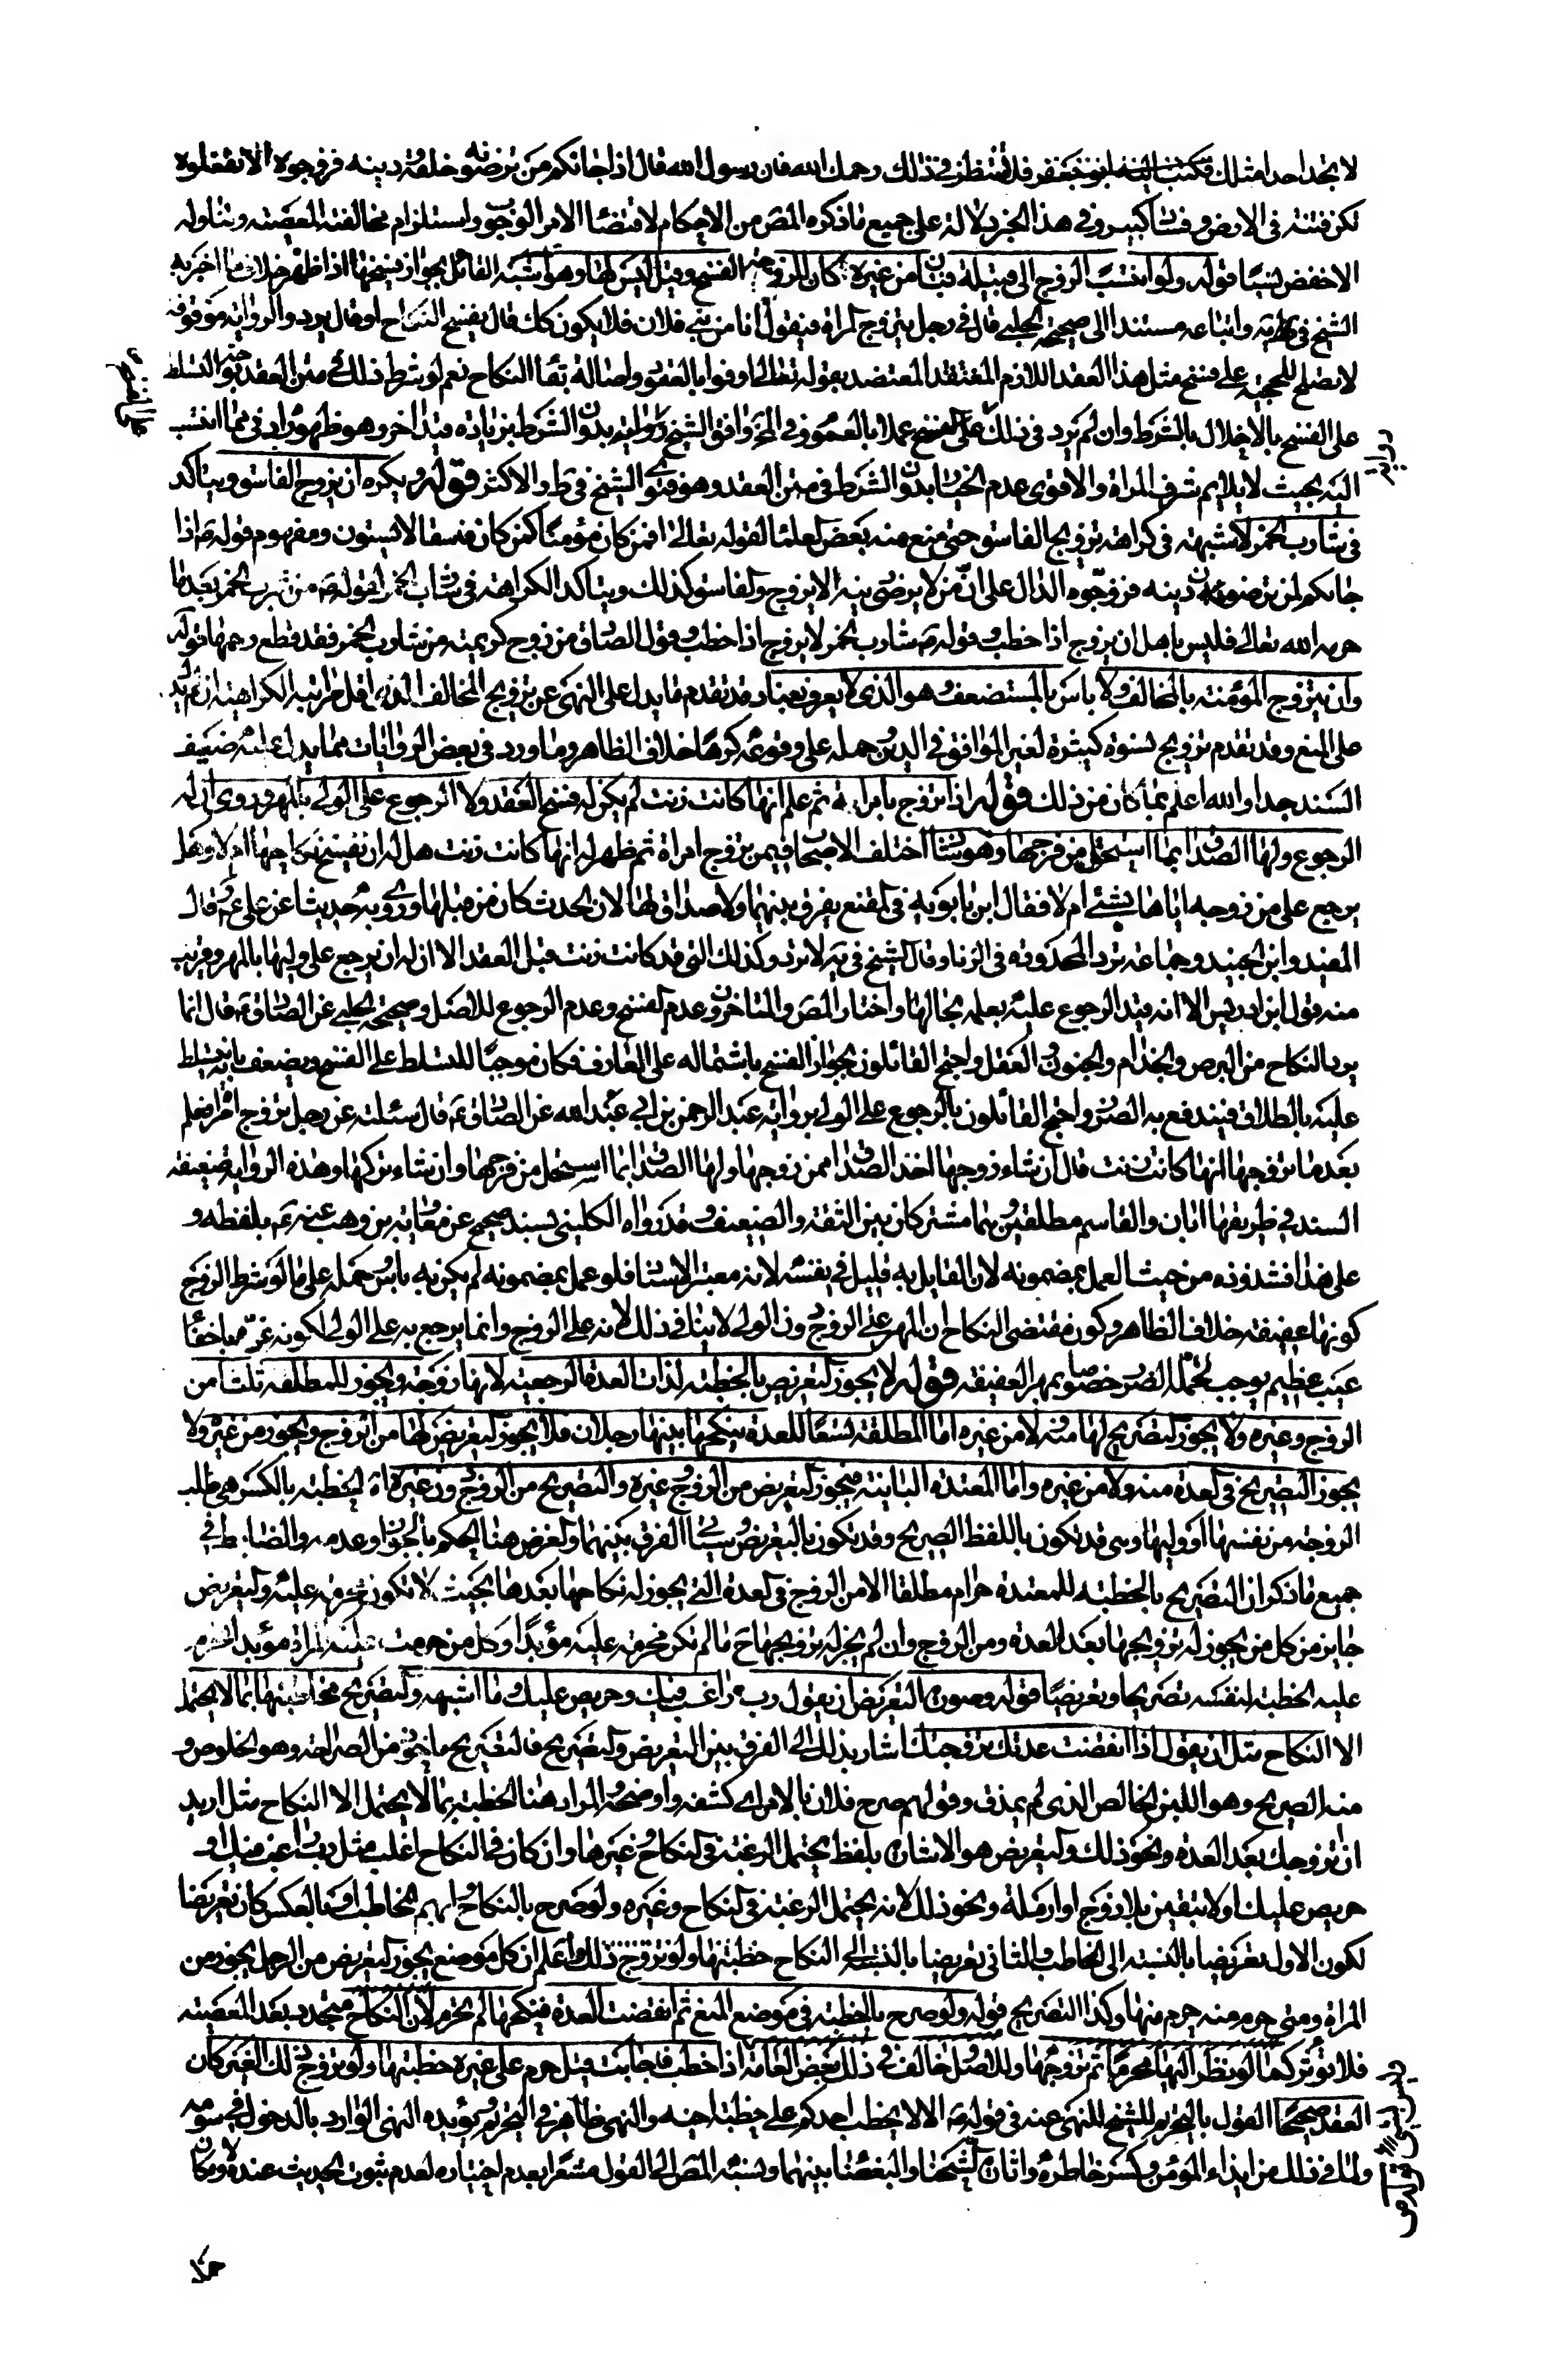 لا يجد احدا مثلك فكتب اليه ابو جعفر فلا تنتظر في ذلك رحمك الله فان رسول الله قال اذا جائكم من ترضون خلقه و دينه فزوجوه الا تفعلوه
تكن فتنة في الارض و فساد كبير و في هذا الخبر دلالة على جميع ما ذكره المص من الاحكام لاقتضاء الامر الوجوب و استلزام مخالفته المعصية و تناوله
الاخفض نسبا قوله ولو انتسب الزوج الى قبيلة فبان من غيرها كان للزوجة الفسخ و قيل ليس لها و هو اشبه القائل بجواز فسخها اذا ظهر خلاف ما اخبر به
الشيخ في ية و اتباعه مستندا الى صحيحة الحلبي قال في رجل يتزوج المراة فيقول انا من بني فلان فلا يكون كك قال يفسخ النكاح او قال يرد و الرواية موقوفة
لا تصلح للحجية على فسخ مثل هذا العقد اللازم المعتضد بقوله تعالى اوفوا بالعقود و اصالة بقاء النكاح نعم لو شرط ذلك في متن العقد توجه التسلط
على الفسخ بالاخلال بالشرط و ان لم يرد في ذلك على الفسخ عملا بالعموم و في المخ وافق الشيخ و اوليته بدون الشرط بزيادة قيد اخر و هو ظهوره ادنى مما انتسب
اليه بحيث لا يلايم شرف المراة و الاقوى عدم الخيار بدون الشرط في متن العقد و هو فتوى الشيخ في ط و الاكثر قوله و يكره ان يزوج الفاسق و يتاكد
في شارب الخمر لا شبهة في كراهة تزويج الفاسق حتى منع منه بعض العلماء لقوله تعالى افمن كان مؤمنا كمن كان فاسقا لا يستون و مفهوم قوله ص اذا
جائكم من ترضون دينه فزوجوه الدال على ان من لا يرضى دينه لا يزوج و الفاسق كذلك و يتاكد الكراهة في شارب الخمر لقوله ص من شرب الخمر بعد ما
حرمه الله تعالى فليس باهل ان يزوج اذا خطب و قوله ص شارب الخمر لا يزوج اذا خطب و قول الصادق من زوج كريمته من شارب الخمر فقد قطع رحمها قوله
وان يتزوج المؤمنة بالمخالف و لا باس بالمستضعف و هو الذي لا يعرف بعناد قد تقدم ما يدل على النهي عن تزويج المخالف الذي اقل مراتبه الكراهية ان لم يدل
على المنع و قد تقدم تزويج نسوة كثيرة لغير الموافق في الدين حمله على وقوعه كرها خلاف الظاهر و ما ورد في بعض الروايات مما يدل عليه ضعيف
السند جدا و الله اعلم بما كان من ذلك قوله اذا تزوج بامراة ثم علم انها كانت زنت لم يكن له فسخ العقد و لا الرجوع على الولي بالمهر و روي ان له
الرجوع و لها الصداق بما استحل من فرجها و هو شاذ اختلف الاصحاب فيمن تزوج امراة ثم ظهر له انها كانت زنت هل له ان يفسخ نكاحها ام لا و هل
يرجع على من زوجه اياها بشئ ام لا فقال ابن بابويه في المقنع يفرق بينهما و لا صداق لها لان الحدث كان من قبلها و روى به حديثا عن علي ع قال
المفيد و ابن الجنيد و جماعة ترد المحدودة في الزنا و قال الشيخ في ية لا ترد و كذلك التي قد كانت زنت قبل العقد الا ان له ان يرجع على وليها بالمهر و قريب
منه قول ابن ادريس الا انه قيد الرجوع عليه بعلمه بحالها و اختار المص و المتاخرون عدم الفسخ و عدم الرجوع للاصل و صحيحة الحلبي عن الصادق ع قال انما
يرد النكاح من البرص و الجذام و الجنون و العفل و احتج القائلون بجواز الفسخ باشتماله على العار فكان موجبا للتسلط على الفسخ و يضعف بانه تسلط
عليه بالطلاق فيندفع به الضرر و احتج القائلون بالرجوع على الولي برواية عبد الرحمن بن ابي عبد الله عن الصادق ع قال سئلته عن رجل تزوج امراة فعلم
بعد ما تزوجها انها كانت زنت قال ان شاء زوجها اخذ الصداق ممن زوجها و لها الصداق بما استحل من فرجها و ان شاء تركها و هذه الرواية ضعيفة
السند في طريقها ابان و القاسم مطلقين و هما مشتركان بين الثقة و الضعيف و قد رواه الكليني بسند صحيح عن معاوية بن وهب عنه ع بلفظه و
على هذا فشذوذه من حيث العمل بمضمونه لان القايل به قليل في نفسه لانه معتبر الاسناد فلو عمل بمضمونه لم يكن به باس و حمله على ما لو شرط الزوج
كونها عفيفة خلاف الظاهر و كون مقتضى النكاح ان المهر على الزوج دون الولي لا ينافي ذلك لانه على الزوج و انما يرجع به على الولي لكونه غره مما خفاء
عيب عظيم يوجب تحمله الضرر خصوصا بمهر العفيفة قوله لا يجوز التعريض بالخطبة لذات العدة الرجعية لانها زوجة و يجوز للمطلقة ثلثا من
الزوج و غيره و لا يجوز التصريح لها منه و لا من غيره اما المطلقة تسعا للعدة ينكحها بينها رجلان فلا يجوز التعريض لها من الزوج و يجوز من غيره و لا
يجوز التصريح في العدة منه و لا من غيره و اما المعتدة البائنة فيجوز التعريض من الزوج و غيره و التصريح من الزوج دون غيره الخطبة بالكسر هي طلب
الزوجة من نفسها او وليها و هي قد تكون باللفظ الصريح و قد تكون بالتعريض و سيأتي الفرق بينهما و الغرض هنا الحكم بالجواز و عدمه و الضابط في
جميع ما ذكر ان التصريح بالخطبة للمعتدة حرام مطلقا الا من الزوج في العدة التي يجوز له نكاحها بعدها بحيث لا تكون محرمة عليه و التعريض
جايز من كل من يجوز له تزويجها بعد العدة و من الزوج و ان لم يجز له تزويجها ح ما لم تكن محرمة عليه مؤبدا و كل من حرمت عليه المراة مؤبدا تحرم
عليه الخطبة لنفسه تصريحا و تعريضا قوله و صورة التعريض ان يقول رب راغب فيك و حريص عليك و ما اشبهه و التصريح مخاطبتها بما لا يحتمل
الا النكاح مثل ان يقول اذا انقضت عدتك تزوجتك اشار بذلك الى الفرق بين التعريض و التصريح فالتصريح ماخوذ من الصراحة و هو الخلوص و
منه الصريح و هو اللبن الخالص الذي لم يمذق و قولهم صرح فلان بالامر اي كشفه و اوضحه و المراد هنا الخطبة بما لا يحتمل الا النكاح مثل اريد
ان تزوجك بعد العدة و نحو ذلك و التعريض هو الاتيان بلفظ يحتمل الرغبة في النكاح و غيرها و ان كان في النكاح اغلب مثل رب راغب فيك او
حريص عليك او لا تبقين بلا زوج او ارملة و نحو ذلك لانه يحتمل الرغبة في النكاح و غيره و لو صرح بالنكاح و ابهم الخاطب او بالعكس كان تعريضا
لكون الاول تعريضا بالنسبة الى الخاطب و الثاني تعريضا بالنسبة الى النكاح خطبتها و لو تزوج ذلك و اعلم ان كل موضع يجوز التعريض من الرجل يجوز من
المراة و متى حرم منه حرم منها و كذا التصريح قوله و لو صرح بالخطبة في موضع المنع ثم انقضت العدة فنكحها لم يحرم لان النكاح متجدد بعد المعصية
فلا تؤثر كما لو نظر اليها محرما ثم تزوجها و للاصل خالف في ذلك بعض العامة اذا خطب فاجابت قيل حرم على غيره خطبتها و لو تزوج ذلك الغير كان
العقد صحيحا القول بالتحريم للشيخ للنهي عنه في قوله ص لا يخطب احدكم على خطبة اخيه و النهي ظاهر في التحريم و يؤيده النهي الوارد بالدخول في سومه
و لما في ذلك من ايذاء المؤمن و كسر خاطره و اثارة الشحناء و البغضاء بينهما و نسبة المص الى القول مشعر بعدم اختياره لعدم ثبوت الحديث عنده